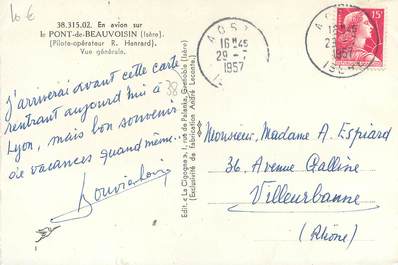 10 €
38.315.02. En avion sur
le PONT-de-BEAUVOISIN (Isère).
(Pilote-opérateur R. Henrard).
Vue générale.
J'arriverai avant cette carte
rentrant aujourd'hui à
Lyon, mais bon souvenir
de vacances quand même...
38
Edit. « La Cigogne », 1, rue du Palais, Grenoble (Isère)
(Exclusivité de fabrication André Leconte.)
AOST
16H45
29 - 
1957
AOST
16H45
29
1957
ISÈRE
15F
Monsieur, Madame A. Espiard
36 Avenue Galline
Villeurbanne
(Rhône)